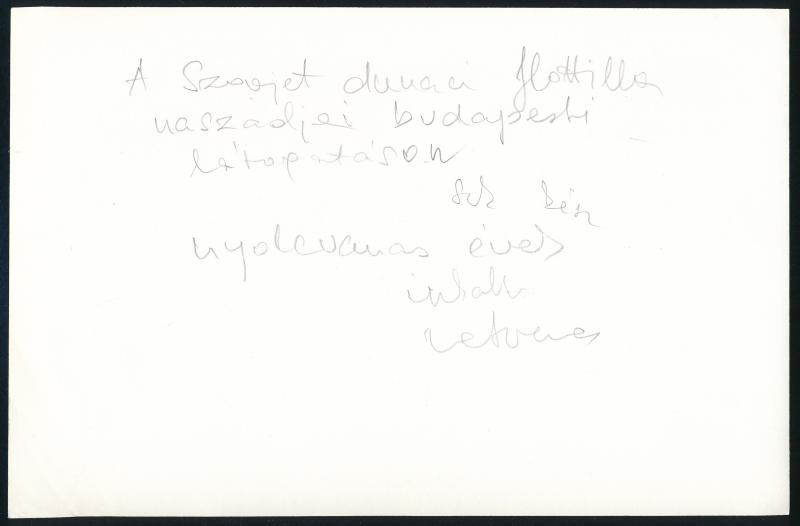 A Szovjet dunai flottilla
naszádjai budapesti
látogatáson
kész
nyolcvanas évek
inkább
hetvenes